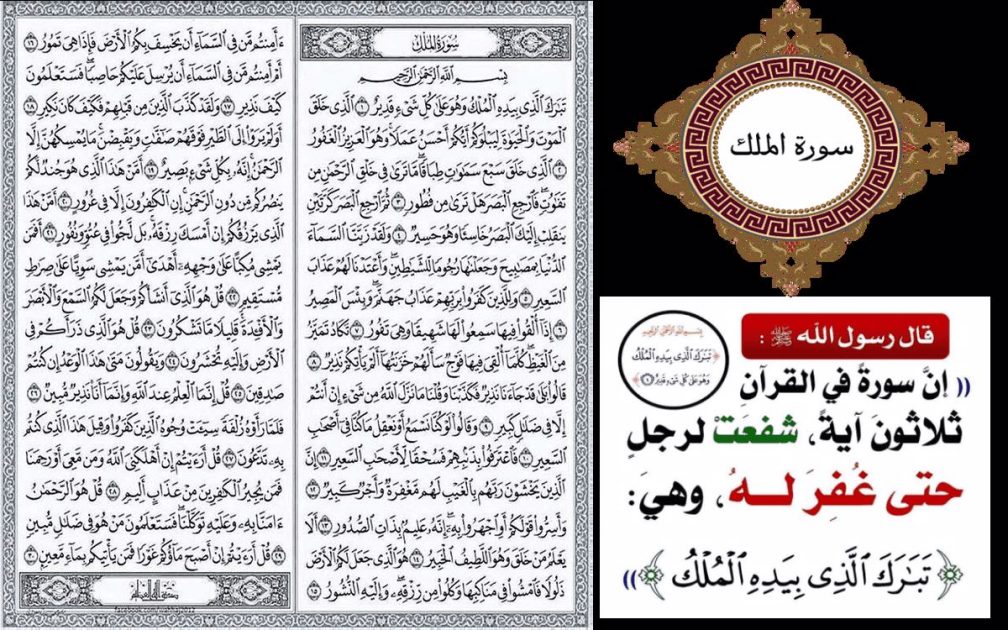 سُورَةُ الْمُلْكِ
بِسْمِ اللَّهِ الرَّحْمَٰنِ الرَّحِيمِ
تَبَٰرَكَ ٱلَّذِى بِيَدِهِ ٱلْمُلْكُ وَهُوَ عَلَىٰ كُلِّ شَىْءٍ قَدِيرٌ ١ ٱلَّذِى خَلَقَ
ٱلْمَوْتَ وَٱلْحَيَوٰةَ لِيَبْلُوَكُمْ أَيُّكُمْ أَحْسَنُ عَمَلًا ۚ وَهُوَ ٱلْعَزِيزُ ٱلْغَفُورُ
٢ ٱلَّذِى خَلَقَ سَبْعَ سَمَٰوَٰتٍ طِبَاقًا ۖ مَّا تَرَىٰ فِى خَلْقِ ٱلرَّحْمَٰنِ مِن
تَفَٰوُتٍ ۖ فَٱرْجِعِ ٱلْبَصَرَ هَلْ تَرَىٰ مِن فُطُورٍ ٣ ثُمَّ ٱرْجِعِ ٱلْبَصَرَ كَرَّتَيْنِ
يَنقَلِبْ إِلَيْكَ ٱلْبَصَرُ خَاسِئًا وَهُوَ حَسِيرٌ ٤ وَلَقَدْ زَيَّنَّا ٱلسَّمَآءَ
ٱلدُّنْيَا بِمَصَٰبِيحَ وَجَعَلْنَٰهَا رُجُومًا لِّلشَّيَٰطِينِ ۖ وَأَعْتَدْنَا لَهُمْ عَذَابَ
ٱلسَّعِيرِ ٥ وَلِلَّذِينَ كَفَرُوا۟ بِرَبِّهِمْ عَذَابُ جَهَنَّمَ ۖ وَبِئْسَ ٱلْمَصِيرُ
٦ إِذَآ أُلْقُوا۟ فِيهَا سَمِعُوا۟ لَهَا شَهِيقًا وَهِىَ تَفُورُ ٧ تَكَادُ تَمَيَّزُ
مِنَ ٱلْغَيْظِ ۖ كُلَّمَآ أُلْقِىَ فِيهَا فَوْجٌ سَأَلَهُمْ خَزَنَتُهَآ أَلَمْ يَأْتِكُمْ نَذِيرٌ ٨
قَالُوا۟ بَلَىٰ قَدْ جَآءَنَا نَذِيرٌ فَكَذَّبْنَا وَقُلْنَا مَا نَزَّلَ ٱللَّهُ مِن شَىْءٍ إِنْ أَنتُمْ
إِلَّا فِى ضَلَٰلٍ كَبِيرٍ ٩ وَقَالُوا۟ لَوْ كُنَّا نَسْمَعُ أَوْ نَعْقِلُ مَا كُنَّا فِىٓ أَصْحَٰبِ
ٱلسَّعِيرِ ١٠ فَٱعْتَرَفُوا۟ بِذَنۢبِهِمْ فَسُحْقًا لِّأَصْحَٰبِ ٱلسَّعِيرِ ١١ إِنَّ
ٱلَّذِينَ يَخْشَوْنَ رَبَّهُم بِٱلْغَيْبِ لَهُم مَّغْفِرَةٌ وَأَجْرٌ كَبِيرٌ ١٢
وَأَسِرُّوا۟ قَوْلَكُمْ أَوِ ٱجْهَرُوا۟ بِهِۦٓ ۖ إِنَّهُۥ عَلِيمٌۢ بِذَاتِ ٱلصُّدُورِ ١٣ أَلَا
يَعْلَمُ مَنْ خَلَقَ وَهُوَ ٱللَّطِيفُ ٱلْخَبِيرُ ١٤ هُوَ ٱلَّذِى جَعَلَ لَكُمُ ٱلْأَرْضَ
ذَلُولًا فَٱمْشُوا۟ فِى مَنَاكِبِهَا وَكُلُوا۟ مِن رِّزْقِهِۦ ۖ وَإِلَيْهِ ٱلنُّشُورُ ١٥
ءَأَمِنتُم مَّن فِى ٱلسَّمَآءِ أَن يَخْسِفَ بِكُمُ ٱلْأَرْضَ فَإِذَا هِىَ تَمُورُ ١٦
أَمْ أَمِنتُم مَّن فِى ٱلسَّمَآءِ أَن يُرْسِلَ عَلَيْكُمْ حَاصِبًا ۖ فَسَتَعْلَمُونَ
كَيْفَ نَذِيرِ ١٧ وَلَقَدْ كَذَّبَ ٱلَّذِينَ مِن قَبْلِهِمْ فَكَيْفَ كَانَ نَكِيرِ ١٨
أَوَلَمْ يَرَوْا۟ إِلَى ٱلطَّيْرِ فَوْقَهُمْ صَٰٓفَّٰتٍ وَيَقْبِضْنَ ۚ مَا يُمْسِكُهُنَّ إِلَّا
ٱلرَّحْمَٰنُ ۚ إِنَّهُۥ بِكُلِّ شَىْءٍۭ بَصِيرٌ ١٩ أَمَّنْ هَٰذَا ٱلَّذِى هُوَ جُندٌ لَّكُمْ
يَنصُرُكُم مِّن دُونِ ٱلرَّحْمَٰنِ ۚ إِنِ ٱلْكَٰفِرُونَ إِلَّا فِى غُرُورٍ ٢٠ أَمَّنْ هَٰذَا
ٱلَّذِى يَرْزُقُكُمْ إِنْ أَمْسَكَ رِزْقَهُۥ ۚ بَل لَّجُّوا۟ فِى عُتُوٍّ وَنُفُورٍ ٢١ أَفَمَن
يَمْشِى مُكِبًّا عَلَىٰ وَجْهِهِۦٓ أَهْدَىٰٓ أَمَّن يَمْشِى سَوِيًّا عَلَىٰ صِرَٰطٍ
مُّسْتَقِيمٍ ٢٢ قُلْ هُوَ ٱلَّذِىٓ أَنشَأَكُمْ وَجَعَلَ لَكُمُ ٱلسَّمْعَ وَٱلْأَبْصَٰرَ
وَٱلْأَفْـِٔدَةَ ۖ قَلِيلًا مَّا تَشْكُرُونَ ٢٣ قُلْ هُوَ ٱلَّذِى ذَرَأَكُمْ فِى
ٱلْأَرْضِ وَإِلَيْهِ تُحْشَرُونَ ٢٤ وَيَقُولُونَ مَتَىٰ هَٰذَا ٱلْوَعْدُ إِن كُنتُمْ
صَٰدِقِينَ ٢٥ قُلْ إِنَّمَا ٱلْعِلْمُ عِندَ ٱللَّهِ وَإِنَّمَآ أَنَا۠ نَذِيرٌ مُّبِينٌ ٢٦
فَلَمَّا رَأَوْهُ زُلْفَةً سِيٓـَٔتْ وُجُوهُ ٱلَّذِينَ كَفَرُوا۟ وَقِيلَ هَٰذَا ٱلَّذِى كُنتُم
بِهِۦ تَدَّعُونَ ٢٧ قُلْ أَرَءَيْتُمْ إِنْ أَهْلَكَنِىَ ٱللَّهُ وَمَن مَّعِىَ أَوْ رَحِمَنَا
فَمَن يُجِيرُ ٱلْكَٰفِرِينَ مِنْ عَذَابٍ أَلِيمٍ ٢٨ قُلْ هُوَ ٱلرَّحْمَٰنُ
ءَامَنَّا بِهِۦ وَعَلَيْهِ تَوَكَّلْنَا ۖ فَسَتَعْلَمُونَ مَنْ هُوَ فِى ضَلَٰلٍ مُّبِينٍ
٢٩ قُلْ أَرَءَيْتُمْ إِنْ أَصْبَحَ مَآؤُكُمْ غَوْرًا فَمَن يَأْتِيكُم بِمَآءٍ مَّعِينٍۭ ٣٠
صدق الله العظيم
سورة الملك
قال رسول الله ﷺ :
بِسْمِ اللَّهِ الرَّحْمَٰنِ الرَّحِيمِ
تَبَٰرَكَ ٱلَّذِى بِيَدِهِ ٱلْمُلْكُ
وَهُوَ عَلَىٰ كُلِّ شَىْءٍ قَدِيرٌ ١
(( إنَّ سورةً في القرآن
ثلاثونَ آيةً، شفعَتْ لرجلٍ
حتى غُفِرَ لــهُ، وهيَ:
﴿ تَبَٰرَكَ ٱلَّذِى بِيَدِهِ ٱلْمُلْكُ ﴾ ))